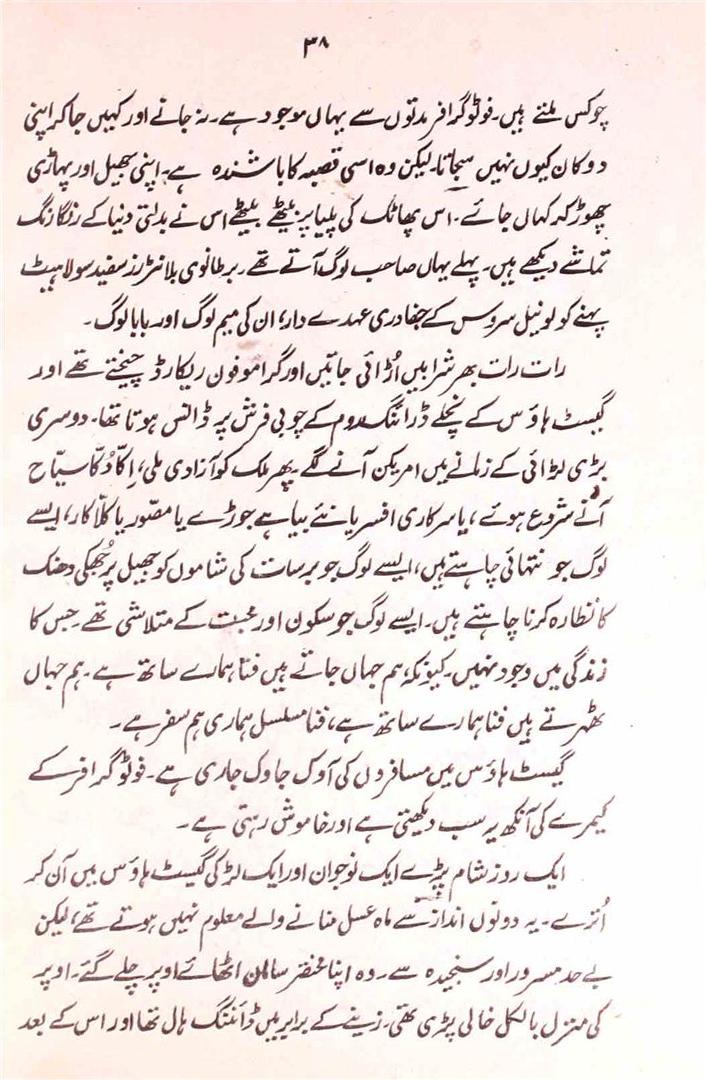 ۳۸
چوکس ملتے ہیں۔ فوٹوگرافر مدتوں سے یہاں موجود ہے۔ نہ جانے اور کہیں جا کر اپنی
دوکان کیوں نہیں سجاتا۔ لیکن وہ اسی قصبہ کا باشندہ ہے۔ اپنی جھیل اور پہاڑی
چھوڑ کر کہاں جائے۔ اس پھاٹک کی پلیا پر بیٹھے بیٹھے اس نے بدلتی دنیا کے رنگا رنگ
تماشے دیکھے ہیں۔ پہلے یہاں صاحب لوگ آتے تھے۔ برطانوی پلانٹرز سفید سولا ہیٹ
پہنے کولونیل سروس کے جغادری عہدے دار، ان کی میم لوگ اور بابا لوگ۔
رات رات بھر شرابیں اُڑائی جاتیں اور گراموفون ریکارڈ چیختے تھے اور
گیسٹ ہاؤس کے نچلے ڈرائنگ روم کے چوبی فرش پر ڈانس ہوتا تھا۔ دوسری
بڑی لڑائی کے زمانے میں امریکن آنے لگے۔ پھر ملک کو آزادی ملی، اِکّا دُکّا سیّاح
آنے شروع ہوئے، یا سرکاری افسر یا نئے بیاہے جوڑے یا مصّور یا کلاکار، ایسے
لوگ جو تنہائی چاہتے ہیں، ایسے لوگ جو برسات کی شاموں کو جھیل پر جُھکی دھنک
کا نظارہ کرنا چاہتے ہیں۔ ایسے لوگ جو سکون اور محبت کے متلاشی تھے جس کا
زندگی میں وجود نہیں۔ کیونکہ ہم جہاں جاتے ہیں فنا ہمارے ساتھ ہے۔ ہم جہاں
ٹھہرتے ہیں فنا ہمارے ساتھ ہے، فنا مسلسل ہماری ہم سفر ہے۔
گیسٹ ہاؤس میں مسافروں کی آوک جاوک جاری ہے۔ فوٹوگرافر کے
کیمرے کی آنکھ یہ سب دیکھتی ہے اور خاموش رہتی ہے۔
ایک روز شام پڑے ایک نوجوان اور ایک لڑکی گیسٹ ہاؤس میں آن کر
اُترے۔ یہ دونوں انداز سے ماہ عسل منانے والے معلوم نہیں ہوتے تھے، لیکن
بے حد مسرور اور سنجیدہ سے۔ وہ اپنا مختصر سامان اٹھائے اوپر چلے گئے۔ اوپر
کی منزل بالکل خالی پڑی تھی۔ زینے کے برابر میں ڈائننگ ہال تھا اور اس کے بعد